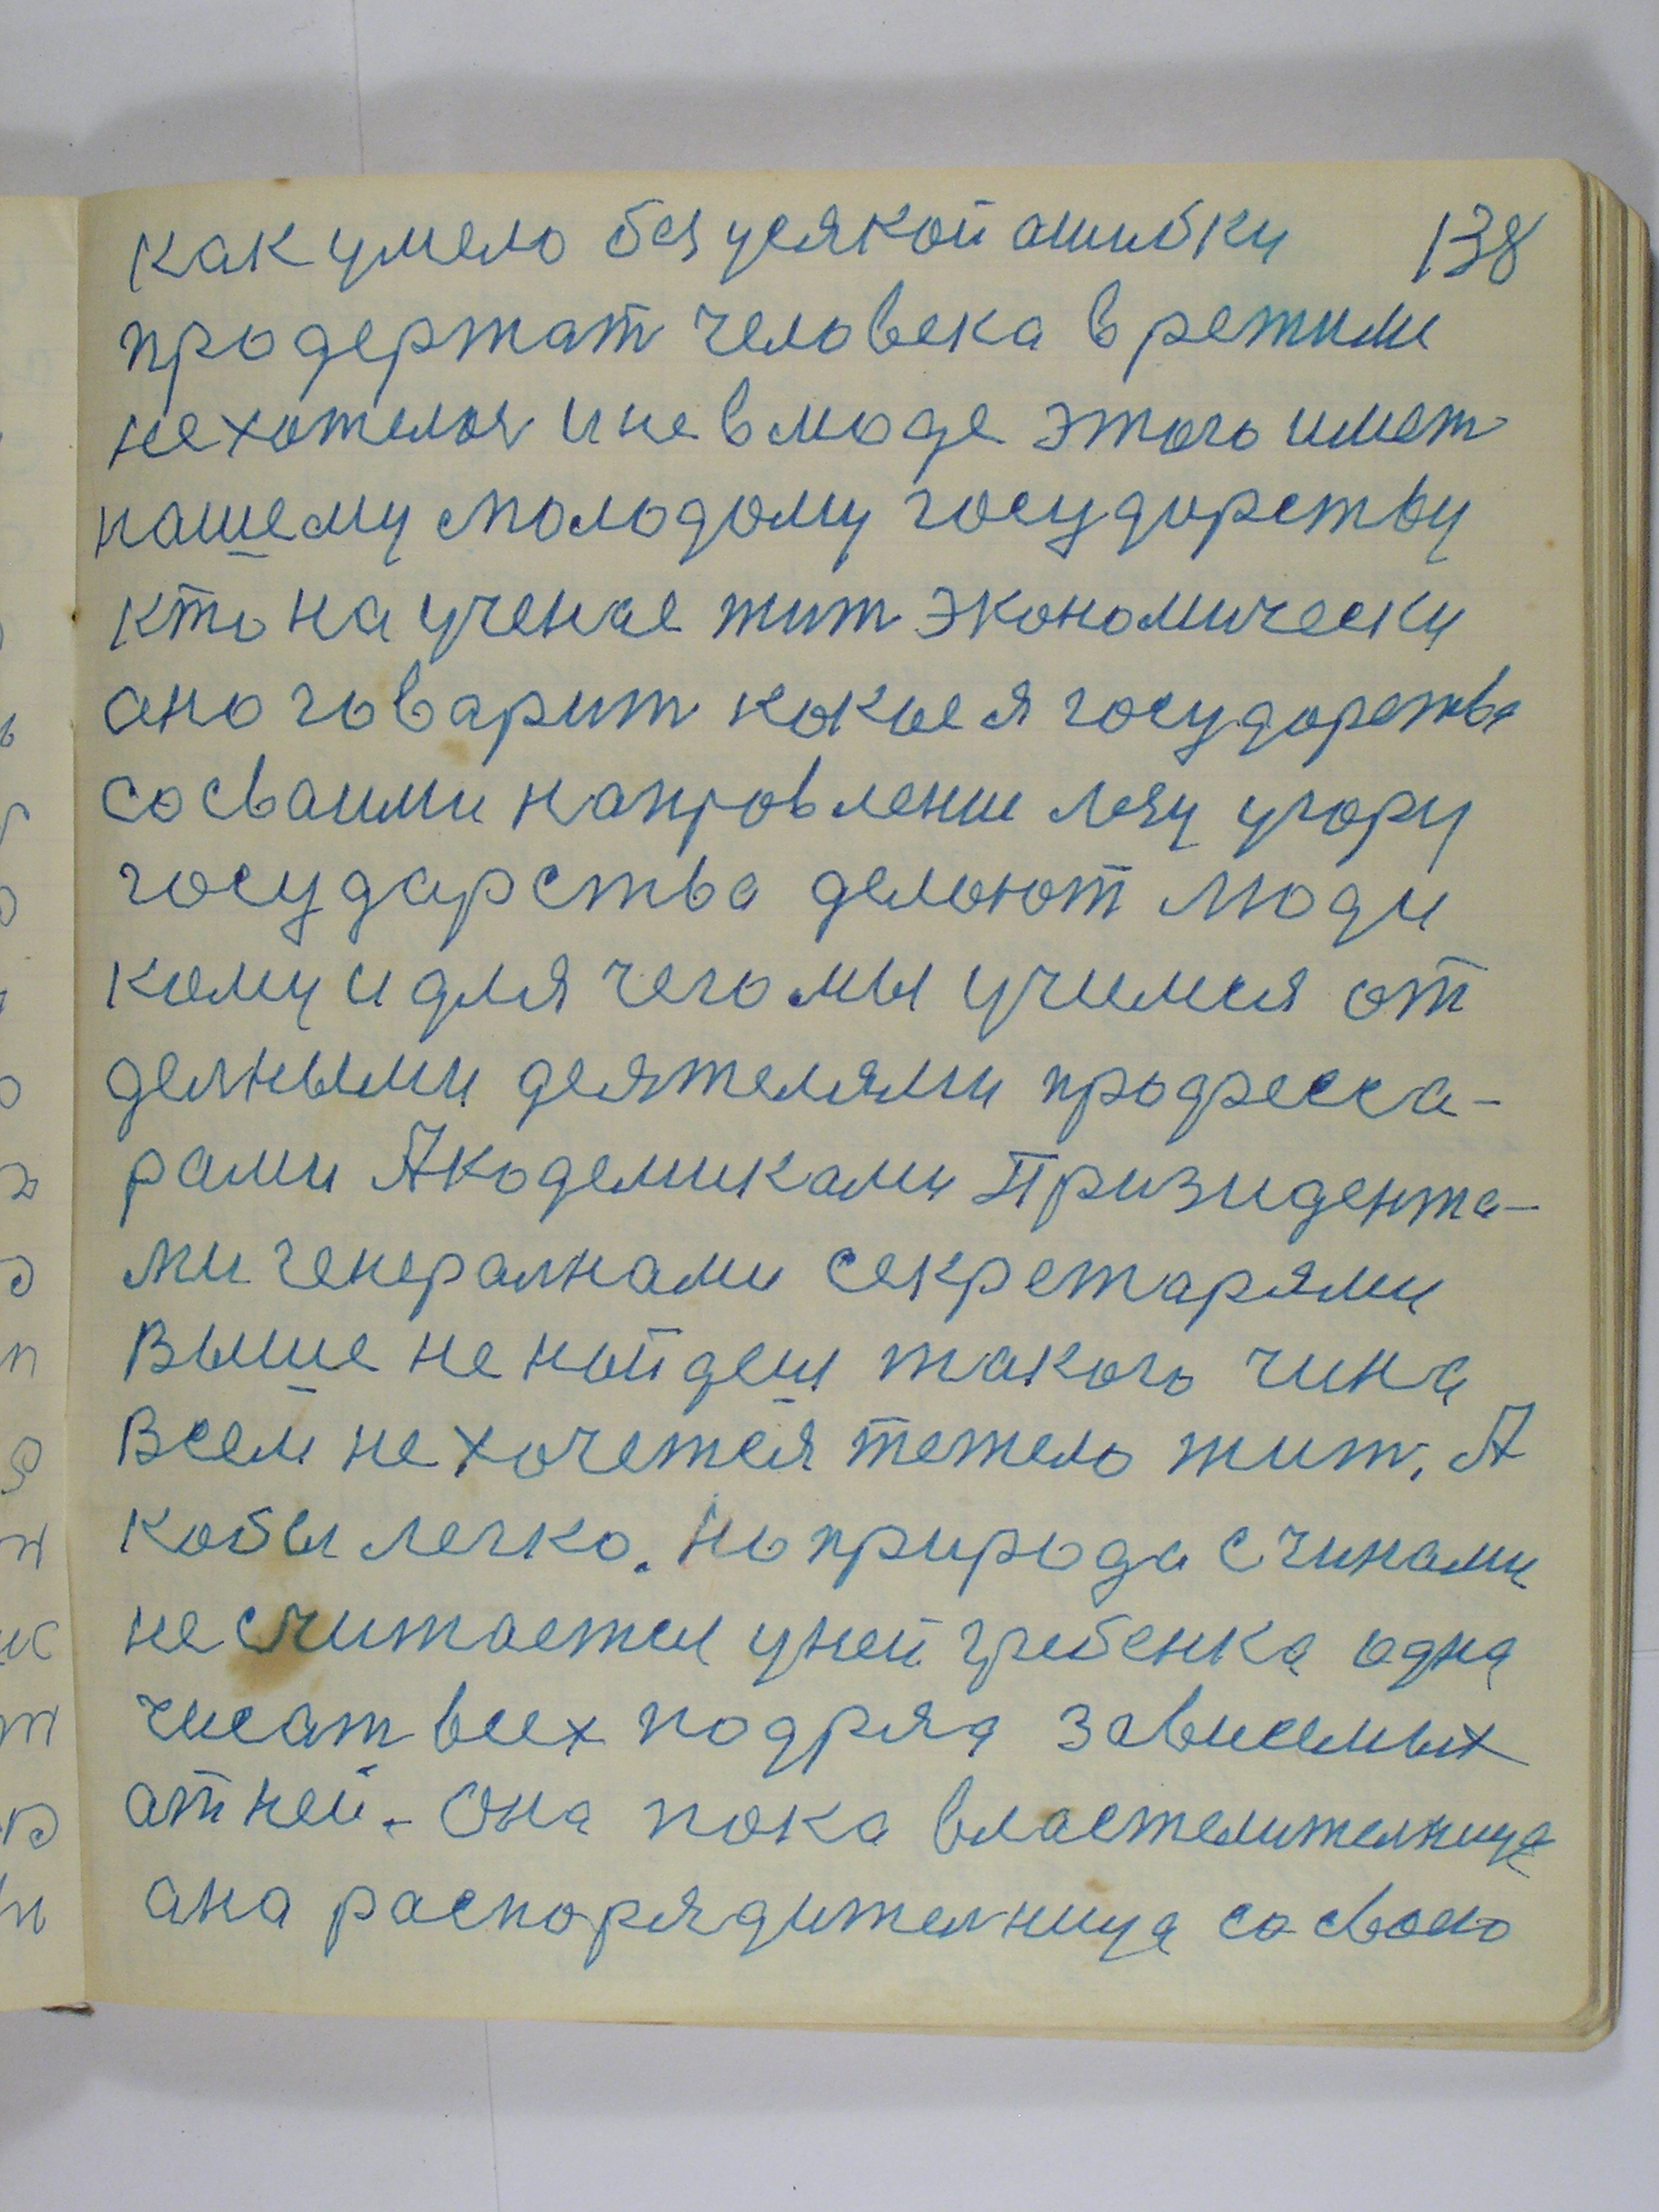 как умело без усякой ошибки 138
продержат человека в режыме
не хотелоя и не в моде этого имет
нашему молодому государству
кто на ученые жит экономически
оно говарит кокые я государства
со сваими направлении лезу угору
государства делоют люди
кому и для чего мы учимся от
делными деятелями профресса-
рами Академиками Призидента-
ми генералнами секретарями
выше не найдеш такого чина
всем не хочется тежело жит. А
кобы легко. Но природа с чинами
не считается уней гребенка одна
чисат всех подряд зависемых
атней. Она пока властелителница
ана распорядителница со своею